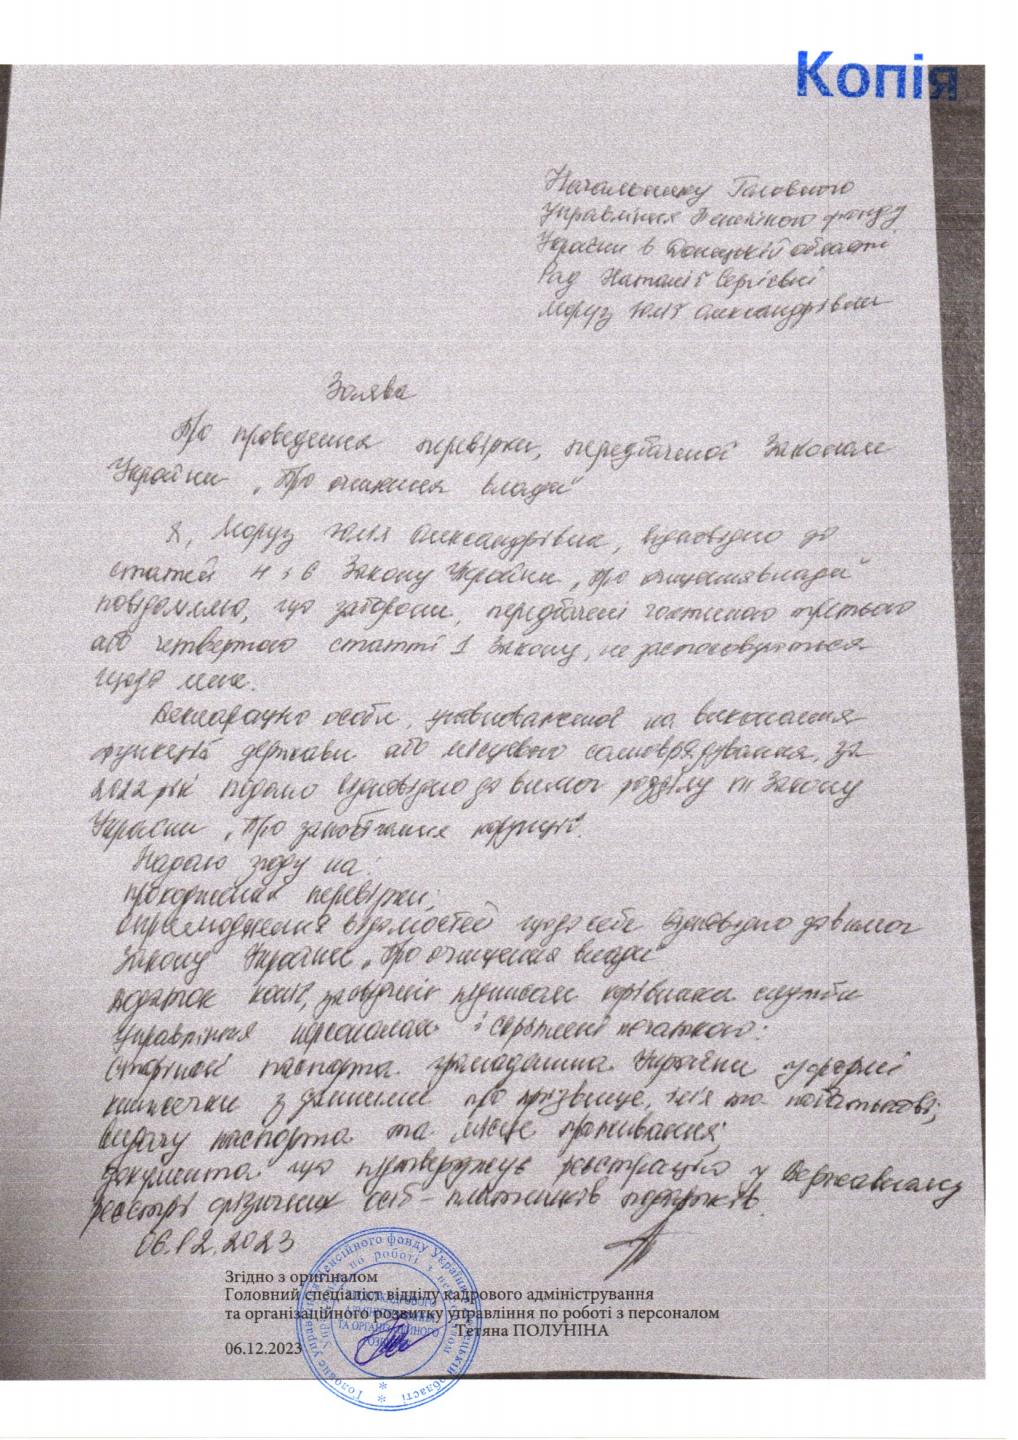 Копія
Начальнику Головного
Управління Пенсійного фонду
України в Донецькій області
Рад Наталії Сергієвні
Моруз Юлії Олександрівни
Заява
Про проведення перевірки, передбаченої Законом
України „Про очищення влади"
Я, Моруз Юлія Олександрівна, відповідно до
статей 4 і 6 Закону України „Про очищення влади"
повідомляю, що заборони, передбачені частиною третьою
або четвертою статті 1 Закону, не застосовуються
щодо мене.
Декларацію особи, уповноваженої на виконання
функцій держави або місцевого самоврядування, за
2022 рік подано відповідно до вимог розділу VII Закону
України „Про запобігання корупції".
Надаю згоду на:
проходження перевірки;
оприлюднення відомостей щодо себе відповідно до вимог
Закону України „Про очищення влади"
Додаток копії, засвідчені підписом керівника служби
управління персоналом і скріплені печаткою:
сторінок паспорта громадянина України у формі
книжечки з даними про прізвище, ім'я та по батькові,
видачу паспорта та місце проживання;
документа що підтверджує реєстрацію у Державному
реєстрі фізичних осіб – платників податків.
06.12.2023
Згідно з оригіналом
Головний спеціаліст відділу кадрового адміністрування
та організаційного розвитку управління по роботі з персоналом
Тетяна ПОЛУНІНА
06.12.2023
Головне управління Пенсійного фонду України в Донецькій області
Управління по роботі з персоналом
ТА ОРГАНІЗАЦІЙНОГО